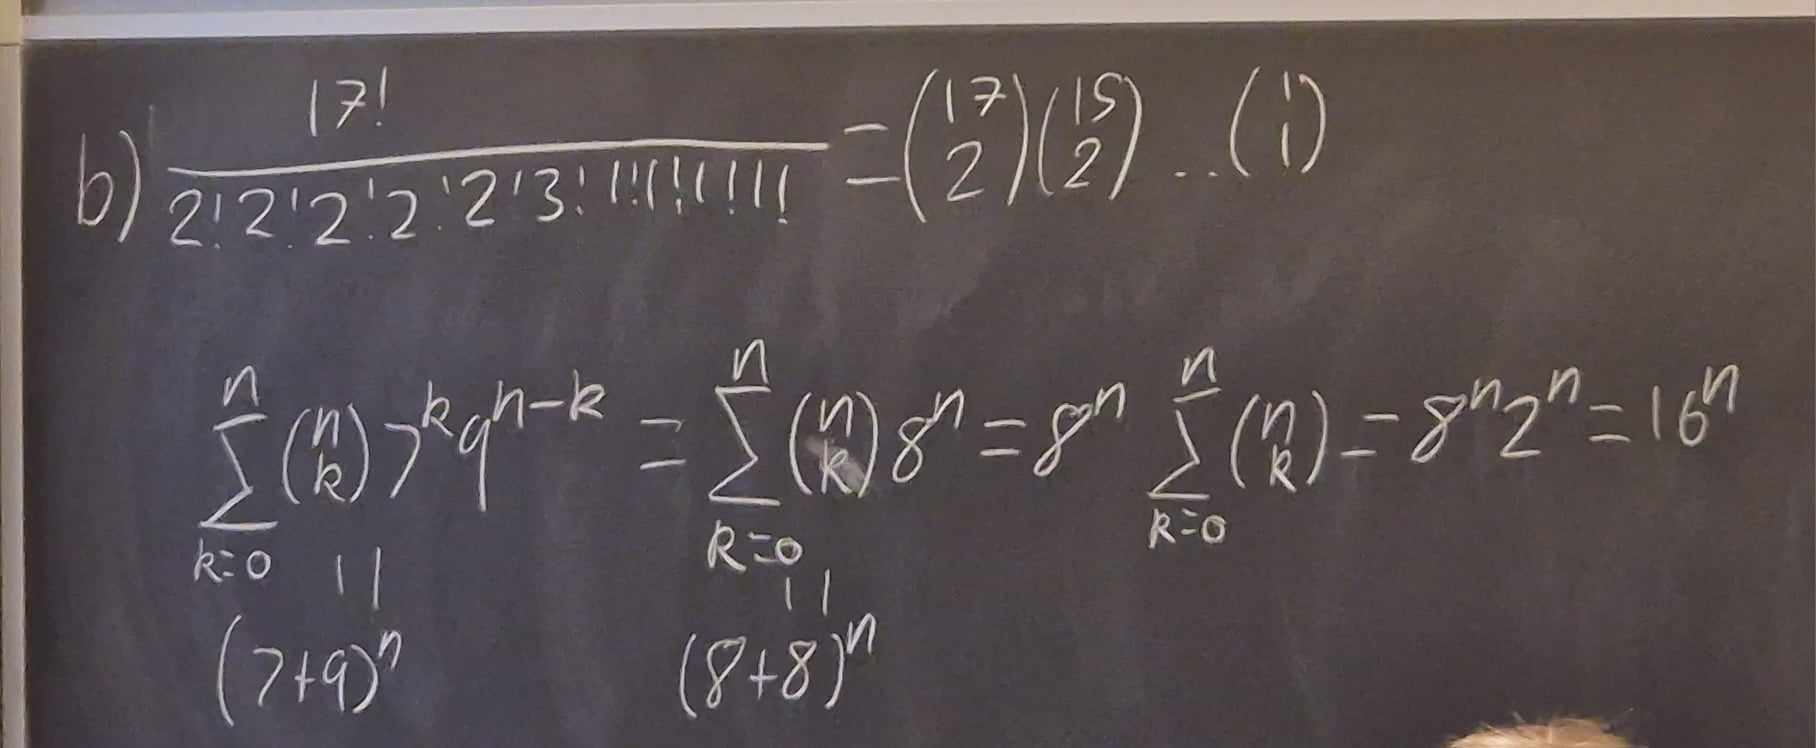 b) 17! / 2!2!2!2!2!3!1!1!1!1! = (17 2)(15 2)...(1 1)
∑_{k=0}^{n} (n k) 7^k 9^{n-k} = ∑_{k=0}^{n} (n k) 8^n = 8^n ∑_{k=0}^{n} (n k) = 8^n 2^n = 16^n
|| ||
(7+9)^n (8+8)^n